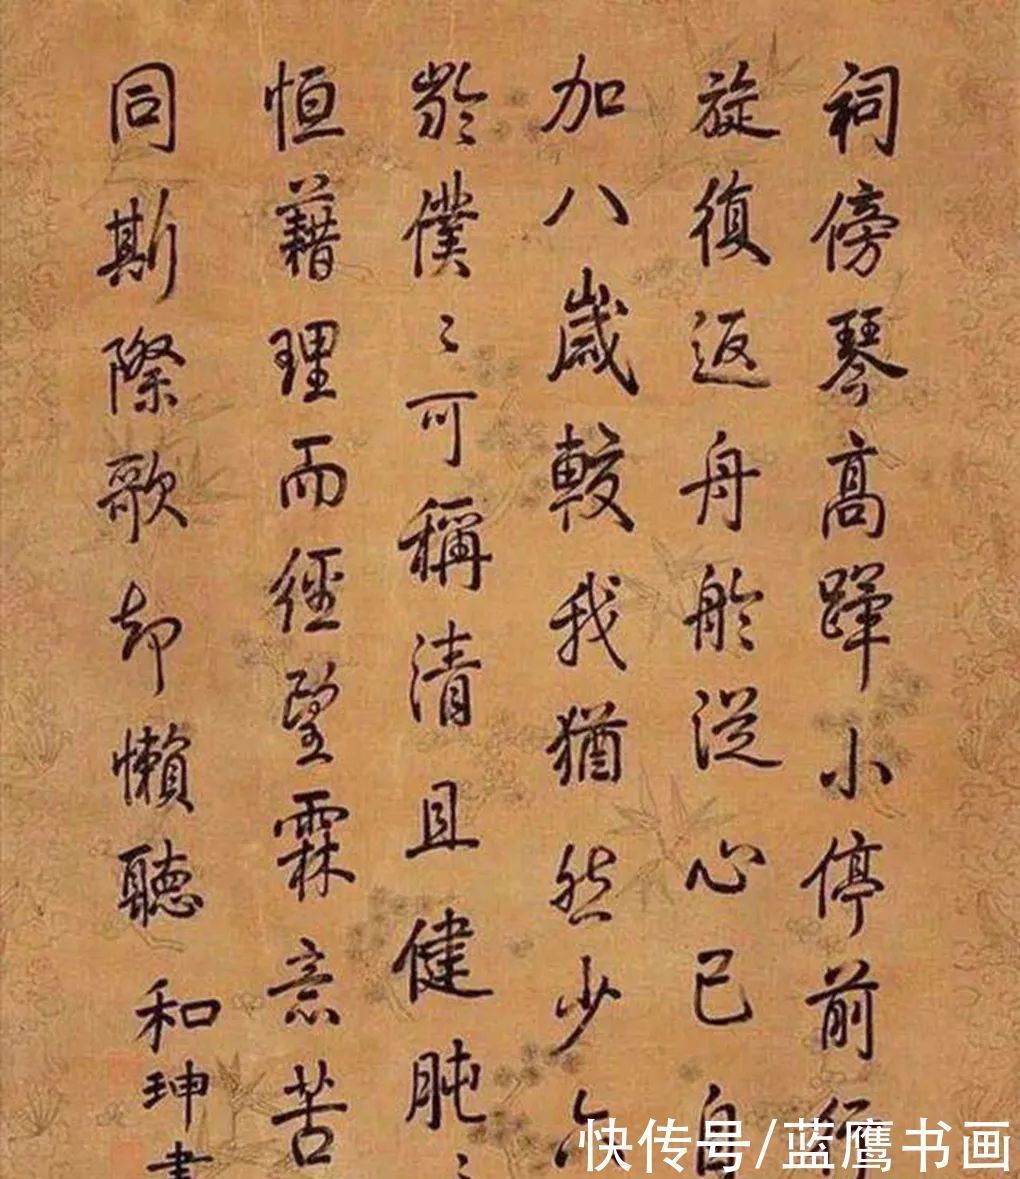 祠傍琴高蹕小停前行
旋復返舟舲從心已自
加八歲較我猶然少六
齡僕〻可稱清且健肫〻
恒藉理而經望霖意苦
同斯際歌却懶聽和珅書
快传号/蓝鹰书画